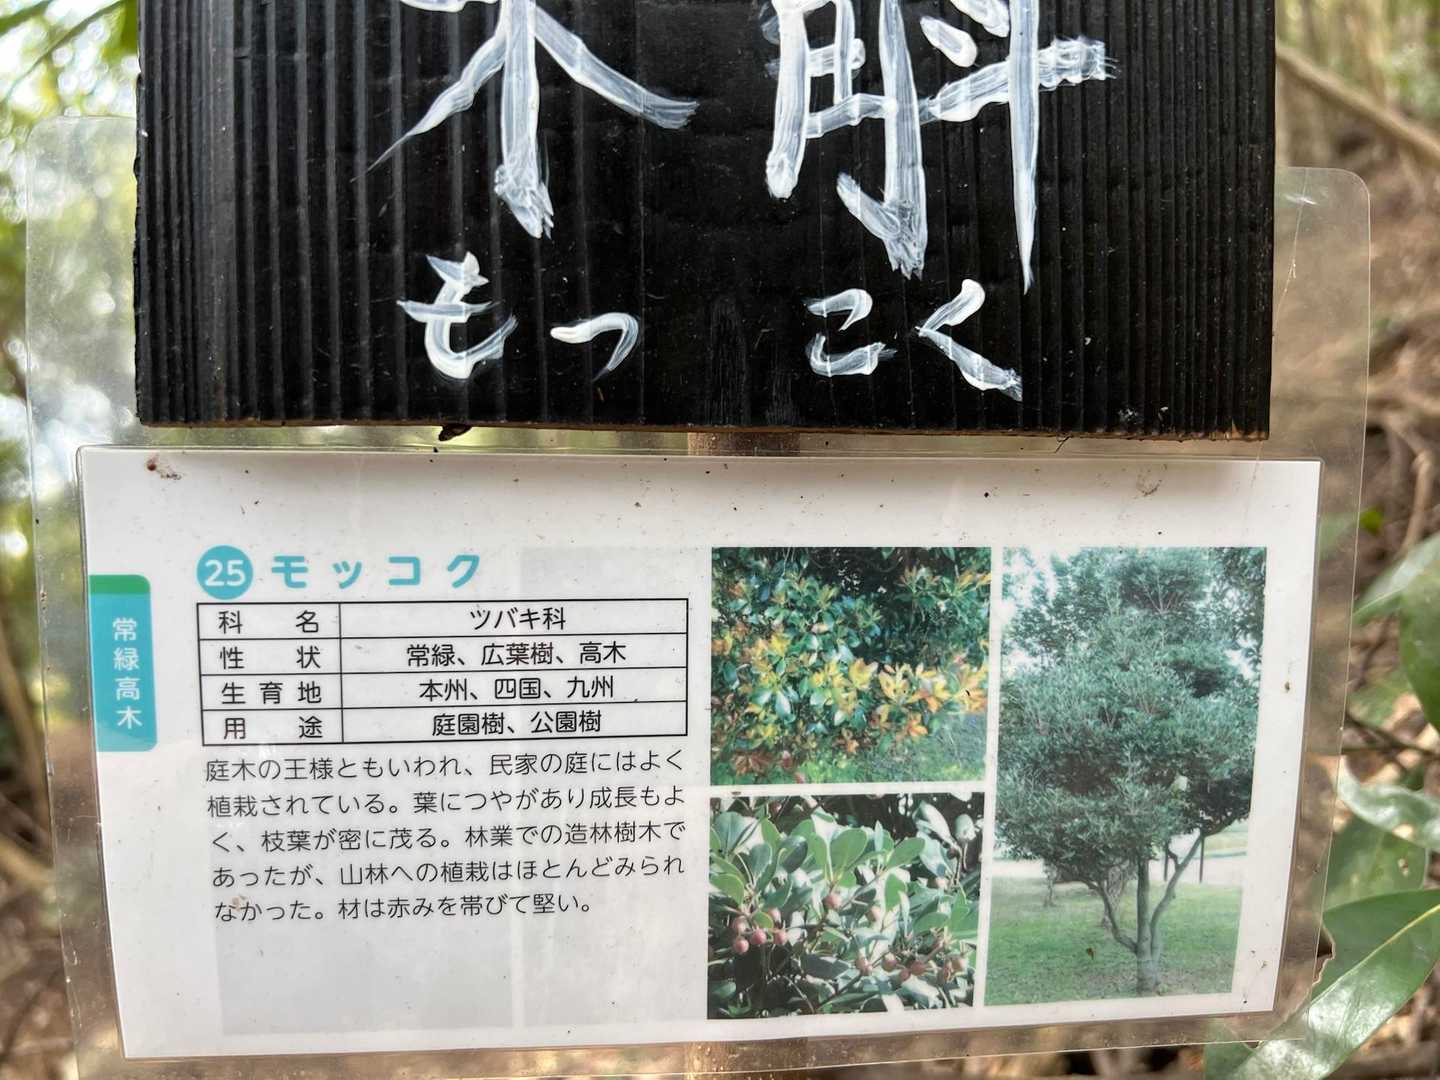 木斛
もっこく
25 モッコク
常緑高木
科名 ツバキ科
性状 常緑、広葉樹、高木
生育地 本州、四国、九州
用途 庭園樹、公園樹
庭木の王様ともいわれ、民家の庭にはよく
植栽されている。葉につやがあり成長もよ
く、枝葉が密に茂る。林業での造林樹木で
あったが、山林への植栽はほとんどみられ
なかった。材は赤みを帯びて堅い。